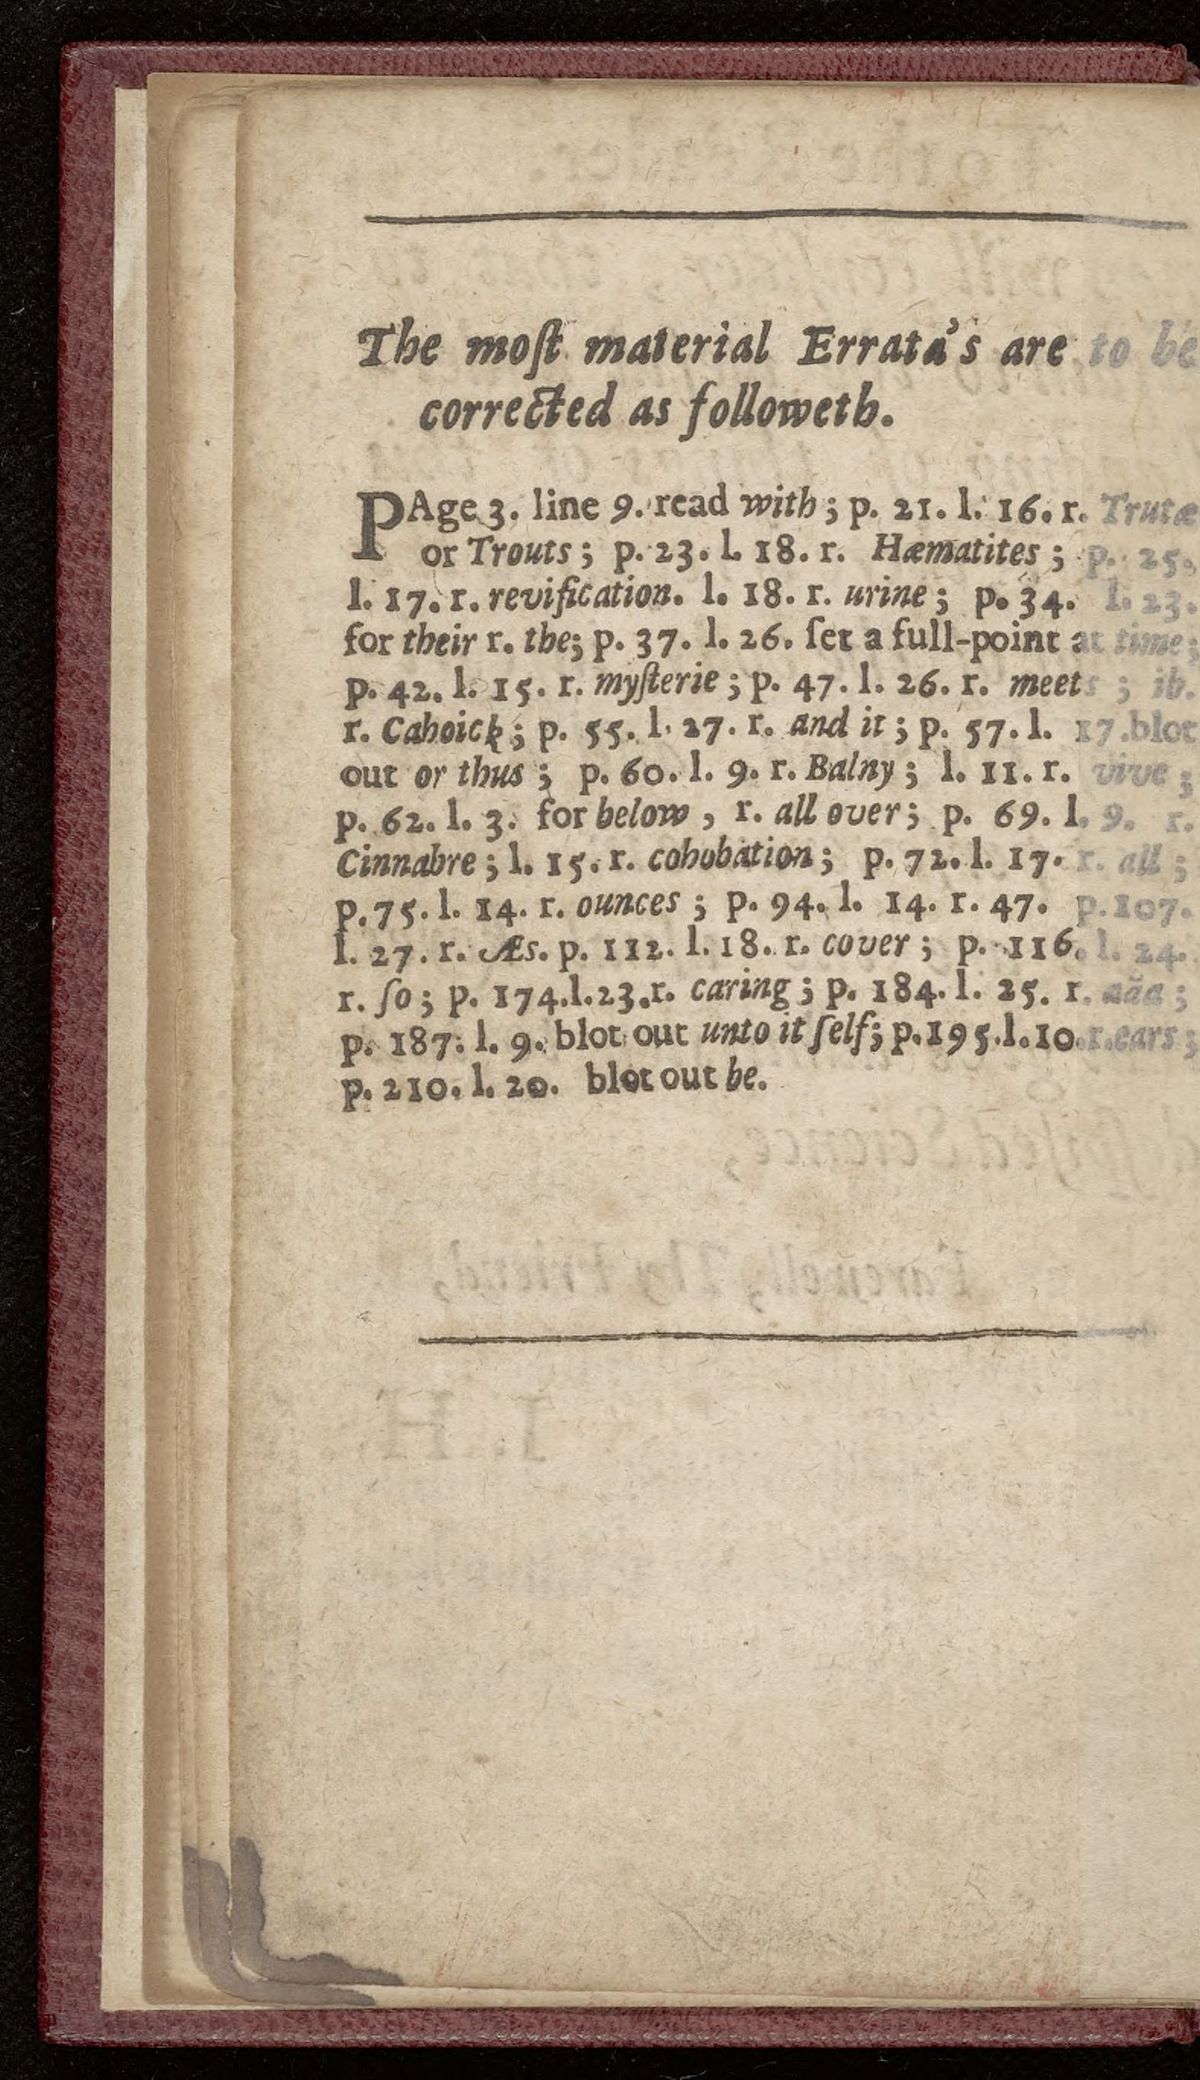 The moſt material Errata's are to be
corrected as followeth.
PAge 3. line 9. read with; p. 21. l. 16. r. Trutæ
or Trouts; p. 23. l. 18. r. Hæmatites; p. 25.
l. 17. r. revification. l. 18. r. urine; p. 34. l. 23.
for their r. the; p. 37. l. 26. ſet a full-point at time;
p. 42. l. 15. r. myſterie; p. 47. l. 26. r. meets; ib.
r. Cahoick; p. 55. l. 27. r. and it; p. 57. l. 17. blot
out or thus; p. 60. l. 9. r. Balny; l. 11. r. vive;
p. 62. l. 3. for below, r. all over; p. 69. l. 9. r.
Cinnabre; l. 15. r. cohobation; p. 72. l. 17. r. all;
p. 75. l. 14. r. ounces; p. 94. l. 14. r. 47. p. 107.
l. 27. r. Æs. p. 112. l. 18. r. cover; p. 116. l. 24.
r. ſo; p. 174. l. 23. r. caring; p. 184. l. 25. r. aãa;
p. 187. l. 9. blot out unto it ſelf; p. 195. l. 10. r. ears;
p. 210. l. 20. blot out be.